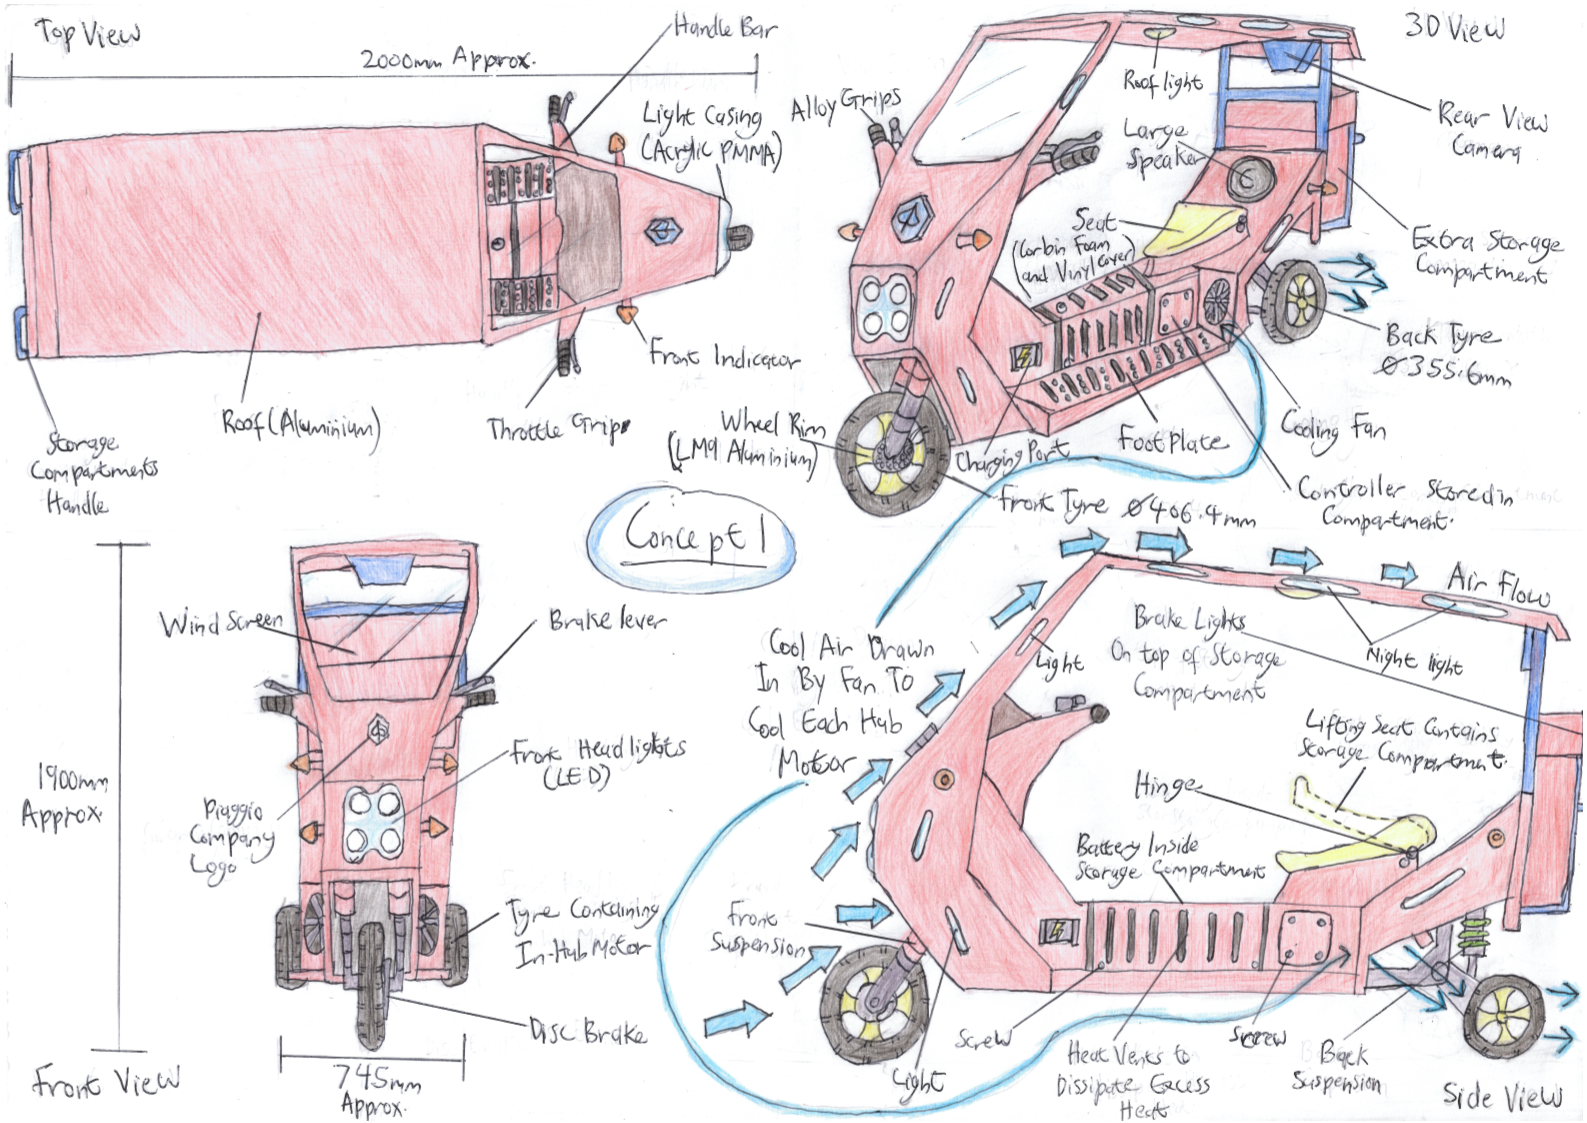 Top View
2000mm Approx.
Handle Bar
Light Casing
(Acrylic PMMA)
Front Indicator
Throttle Grips
Roof (Aluminium)
Storage
Compartments
Handle
3D View
Roof light
Alloy Grips
Large
Speaker
Rear View
Camera
Seat
(Corbin Foam
and Vinyl Cover)
Extra Storage
Compartment
Back Tyre
Ø355.6mm
Wheel Rim
(LM9 Aluminium)
Charging Port
Foot Plate
Cooling Fan
Front Tyre Ø406.4mm
Controller Stored in
Compartment.
Concept 1
1900mm
Approx.
Wind Screen
Brake lever
Front Headlights
(LED)
Piaggio
Company
Logo
Tyre Containing
In-Hub Motor
Disc Brake
745mm
Approx.
Front View
Cool Air Drawn
In By Fan To
Cool Each Hub
Motor
Air Flow
Light
Brake Lights
On top of Storage
Compartment
Night light
Lifting Seat Contains
Storage Compartment.
Hinge
Battery Inside
Storage Compartment
Front
Suspension
Light
Screw
Heat Vents to
Dissipate Excess
Heat
Screw
Back
Suspension
Side View